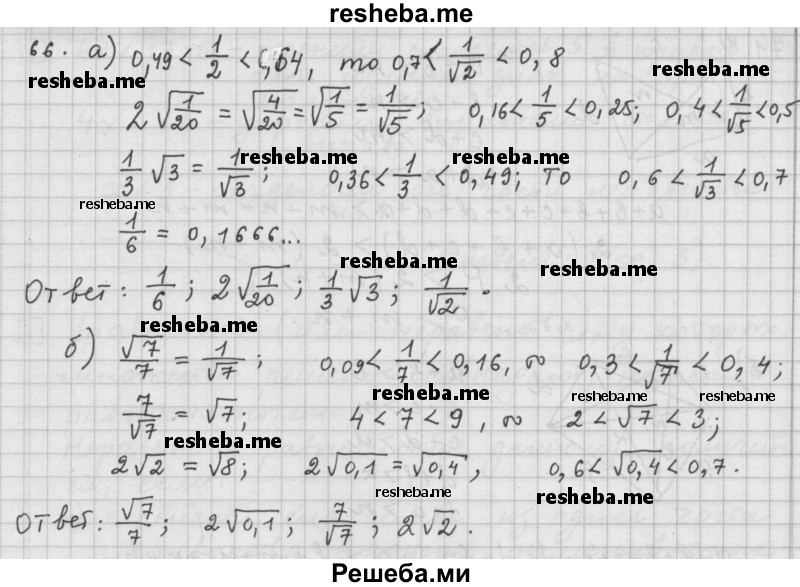 resheba.me
66. а) 0,49 < 1/2 < 0,64, то 0,7 < 1/√2 < 0,8
resheba.me resheba.me
2√(1/20) = √(4/20) = √(1/5) = 1/√5; 0,16 < 1/5 < 0,25; 0,4 < 1/√5 < 0,5
resheba.me resheba.me
1/3 √3 = 1/√3; 0,36 < 1/3 < 0,49; то 0,6 < 1/√3 < 0,7
resheba.me
1/6 = 0,1666...
resheba.me resheba.me
Ответ: 1/6; 2√(1/20); 1/3 √3; 1/√2.
resheba.me
б) √7/7 = 1/√7; 0,09 < 1/7 < 0,16, 0,3 < 1/√7 < 0,4;
resheba.me resheba.me resheba.me
7/√7 = √7; 4 < 7 < 9, 2 < √7 < 3;
resheba.me
2√2 = √8; 2√0,1 = √0,4, 0,6 < √0,4 < 0,7.
resheba.me resheba.me
Ответ: √7/7; 2√0,1; 7/√7; 2√2.
Решеба.ми